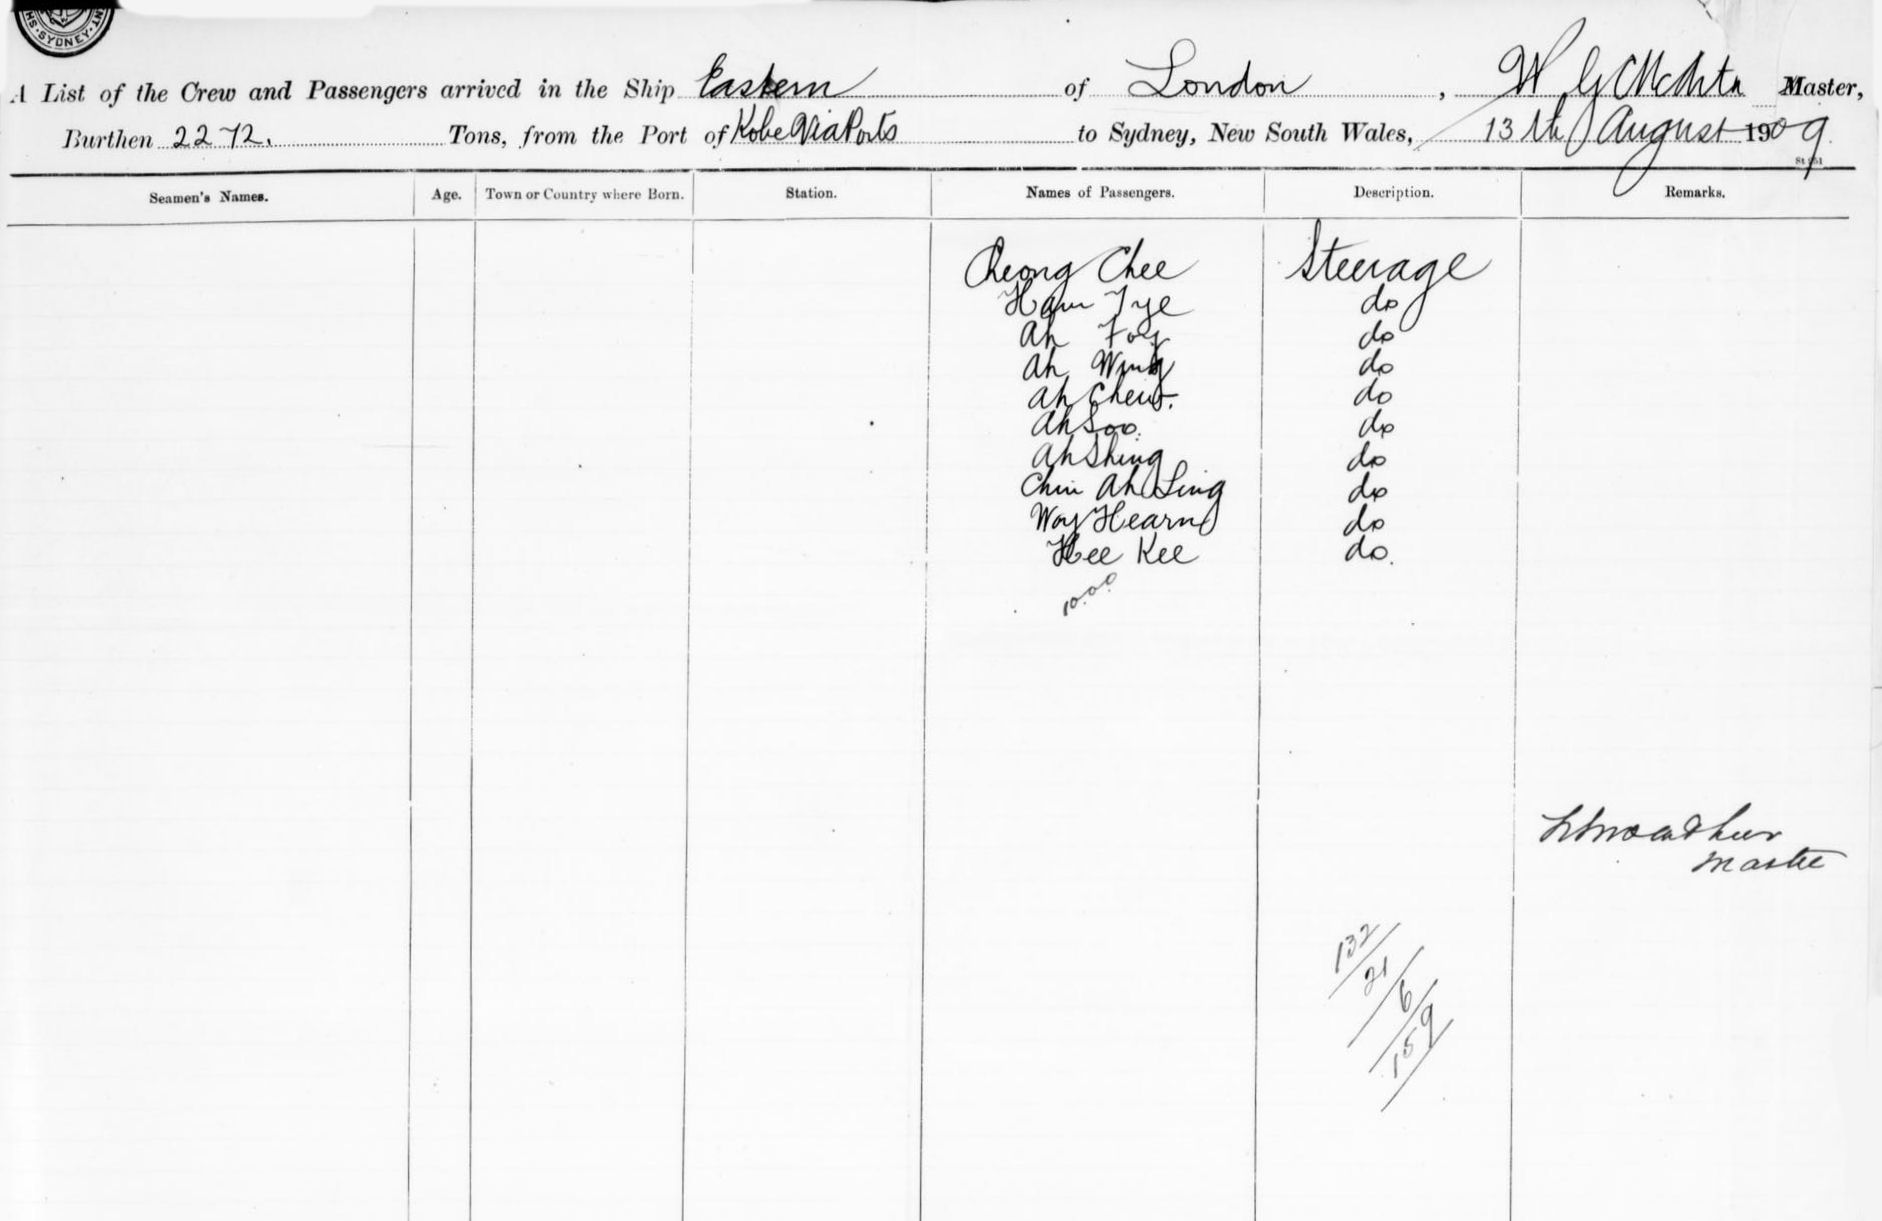 SYDNEY
A List of the Crew and Passengers arrived in the Ship Eastern of London, W G McArtn Master,
Burthen 2272. Tons, from the Port of Kobe Via Ports to Sydney, New South Wales, 13th August 1909.
Seamen's Names. Age. Town or Country where Born. Station. Names of Passengers. Description. Remarks.
Cheong Chee Steerage
Ham Tye do
Ah Foy do
Ah Wing do
Ah Chew. do
Ah Soo. do
Ah Shing do
Chin Ah Ling do
Way Hearn do
Hee Kee do.
Master
132
21
6
159